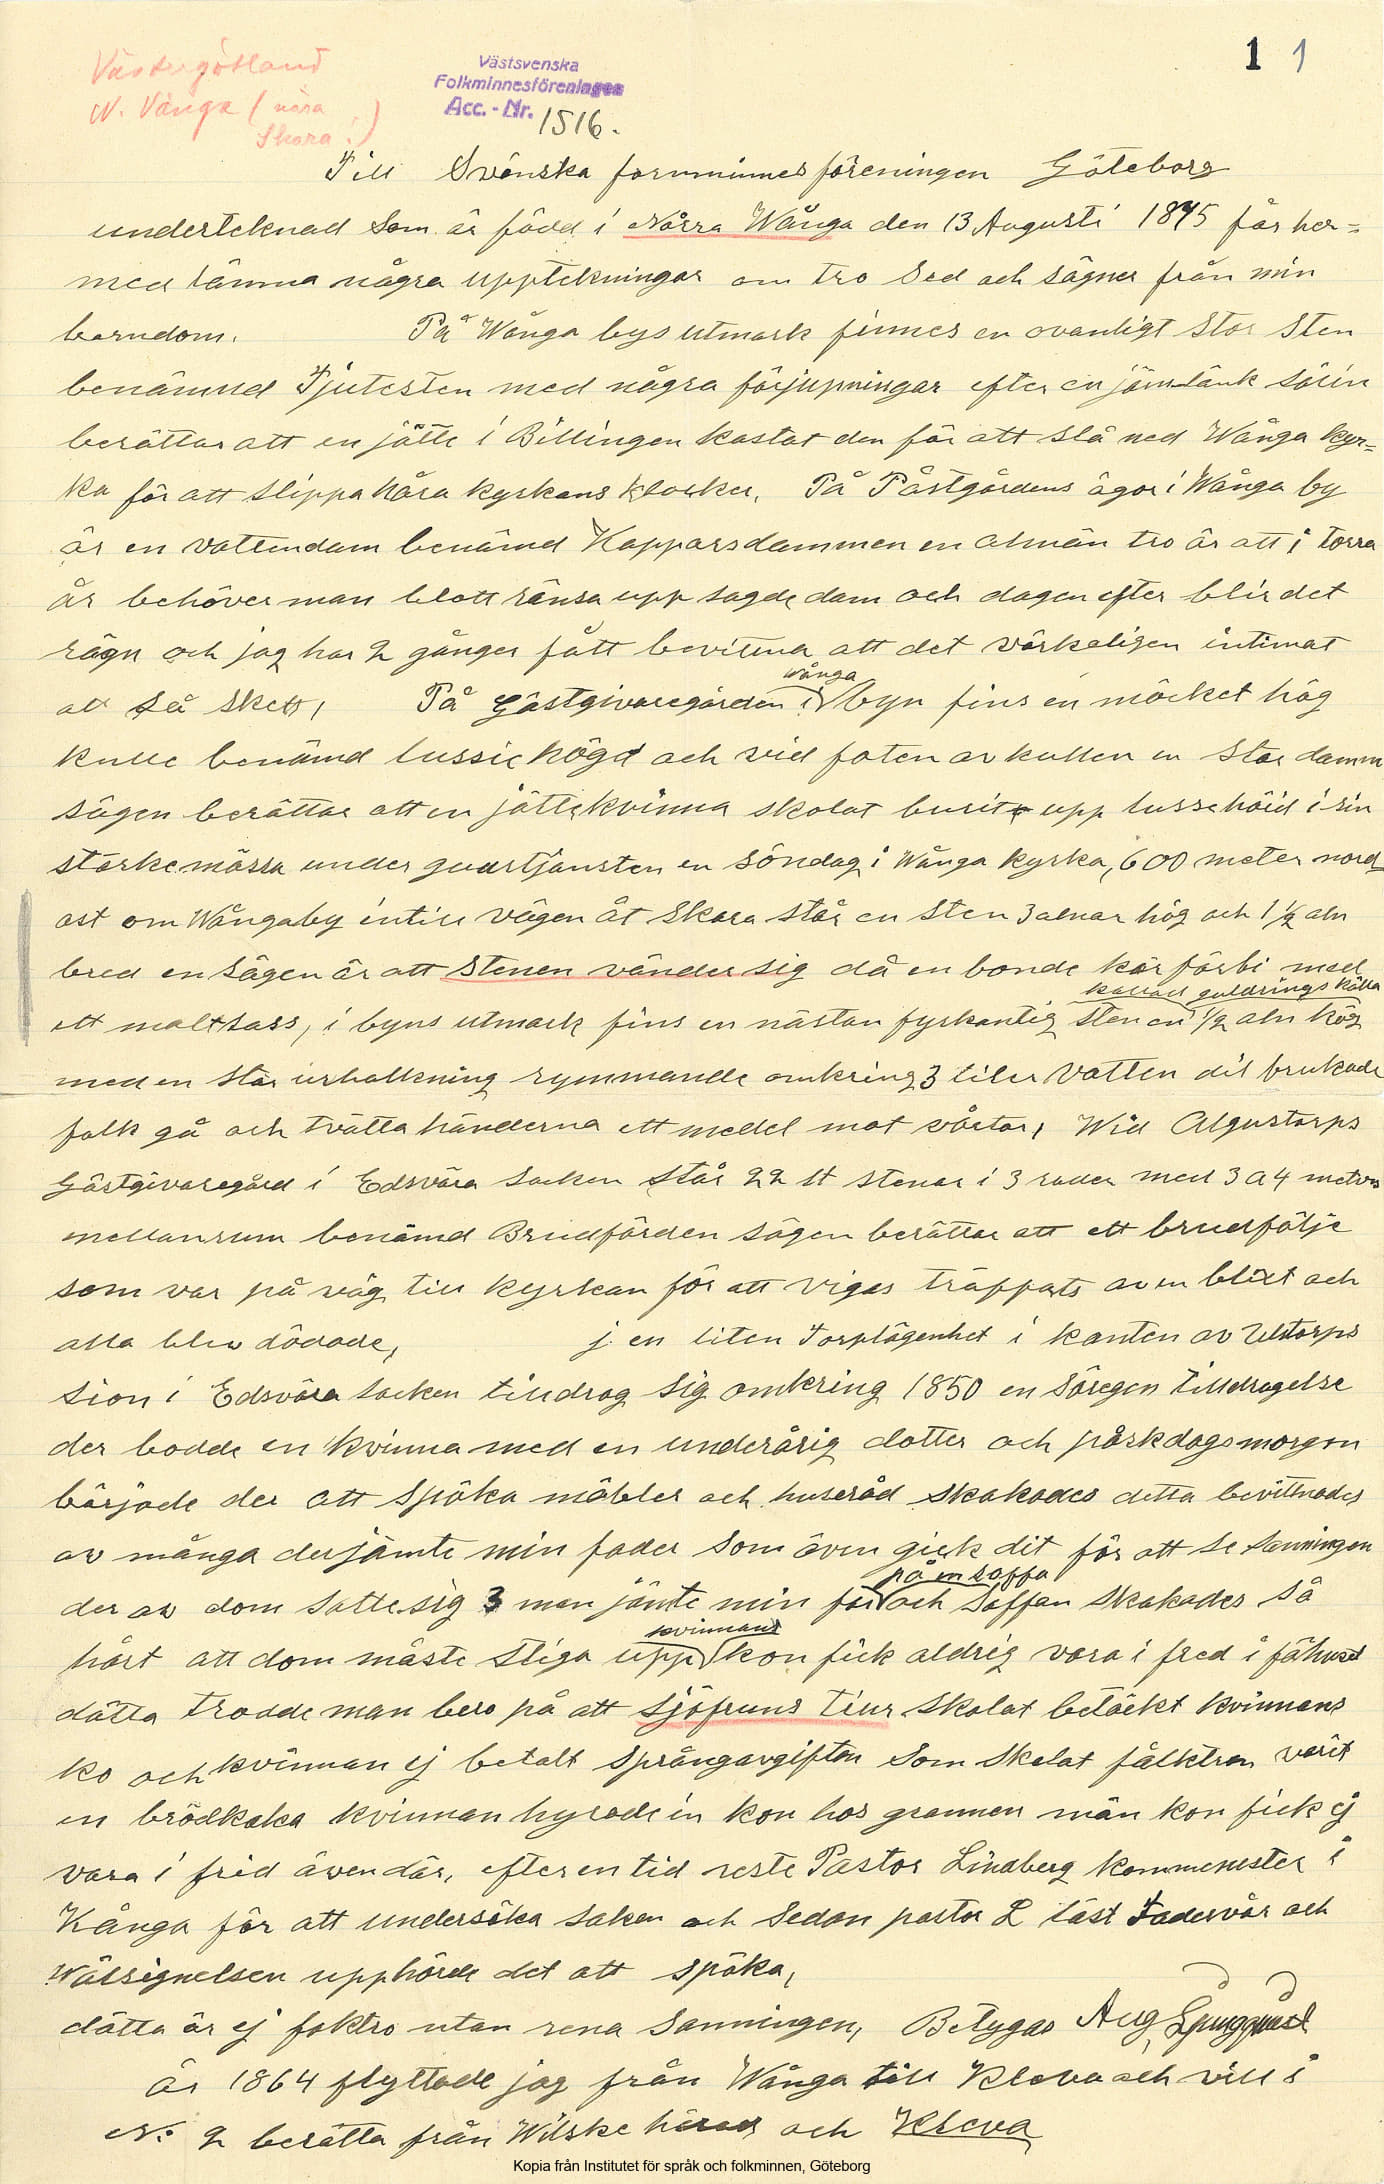 1 1
Västergötland
N. Vånga (nära
Skara!)
Västsvenska
Folkminnesföreningen
Acc.-Nr. 1516.
Till Svenska fornminnesföreningen Göteborg
undertcknad Som är född i Nårra Wånga den 13 Augusti 1845 får her=
med lämna några upptekningar om tro Sed och sägner från min
barndom. På Wånga bys utmark finnes en ovanligt Stor Sten
benämnd Tjutesten med några förjupningar efter en järnlänk
berättar att en jätte i Billingen kastat den för att slå ned Wånga kyr=
ka för att slippa håra kyrkans klocker. På Påstgårdens ägor i Wånga by
är en vattendam benämd Kapparsdammen en almän tro är att i torra
år behöver man blott ränsa upp sagde dam och dagen efter blir det
rägn och jag har 2 gånger fått bevittna att det värkeligen intimat
at så skett, På Gästgivaregården i Wånga byn fins en möcket hög
kulle benämd lussie högd och vid foten av kullen en Stor damm
sägen berättar att en jättekvinna skolat burit upp lussehöid i sin
starkemässa under gudstjansten en söndag i Wånga kyrka, 600 meter nord
ost om Wångaby intill vägen åt Skara står en Sten 3 alnar hög och 1 1/2 aln
bred en sägen är att stenen vänder sig då en bonde kör förbi med
ett maltlass, i byns utmark fins en nästan fyrkantig sten kallad guldrings källa en 1/2 aln hög
med en stor urholkning rymmande omkring 3 liter Vatten dit brukade
folk gå och tvätta händerna ett medel mot vårtor, Wid Algustorps
Gästgivaregård i Edsvära Socken står 22 st stenar i 3 rader med 3 a 4 meters
mellanrum benämd Brudfärden sägen berättar att ett brudfölje
som var på väg till kyrkan för att vigas träffats av en blixt och
alla blev dödade, j en liten Torplägenhet i kanten av Ulstorps
sion i Edsvära Socken tilldrog sig omkring 1850 en säregen tilldragelse
der bodde en kvinna med en underårig dotter och påskdagsmorgon
började der att spöka möbler och huseråd skakades detta bevittnades
av många derjämte min fader som även gick dit för att se sanningen
der av dom satte sig 3 man jämte min far på en soffa och Soffan skakades så
hårt att dom måste stiga upp kvinnans kon fick aldrig vara i fred i fähuset
dätta trodde man bero på att sjöfruns tiur skolat betäckt kvinnans
ko och kvinnan ej betalt språngavgiften som skolat fälktron varit
en brödkaka kvinnan hyrade in kon hos grannen män kon fick ej
vara i frid även där, efter en tid reste Pastor Lindberg kommenister i
Kånga för att undersöka saken och sedan pastor L läst Fadervår och
Wälsignelsen upphörde det att spöka,
dätta är ej foktro utan rena sanningen, Betygas Aug Ljungquist
År 1864 flyttade jag från Wånga till Kleva och vill i
No 2 berätta från Wilske härad och Kleva
Kopia från Institutet för språk och folkminnen, Göteborg